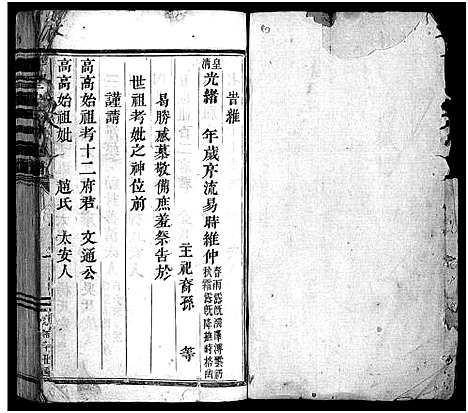 旹維
皇清光緒 年歲序流易時維仲春雨露既濡
秋霜露既降
主祀裔孫 等
曷勝感慕敬備庶羞祭告於
世祖考妣之神位前
謹請
高高始祖考十二府君 文通公
高高始祖妣 趙氏 太安人